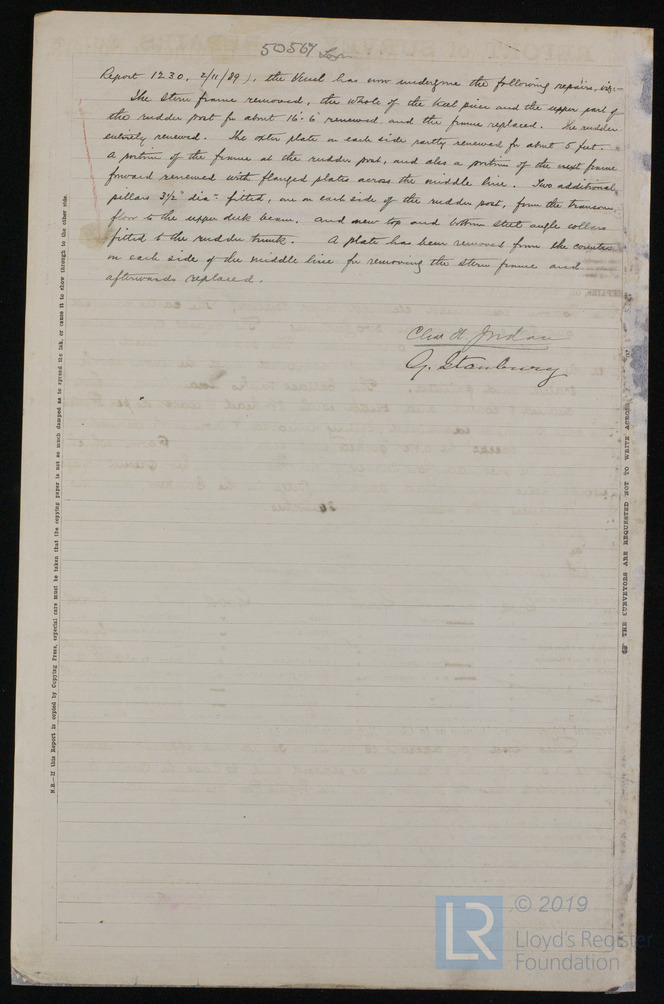 50567 Lon
Report 1230, 2/11/89), the Vessel has now undergone the following repairs, viz:-
The Stern frame removed, the whole of the keel piece and the upper part of
the rudder post for about 16'. 6" renewed and the frame replaced. The rudder
entirely renewed. The oxter plate on each side partly renewed for about 5 feet.
A portion of the frame at the rudder post, and also a portion of the next frame
forward renewed with flanged plates across the middle line. Two additional
pillars 3½" dia: fitted, one on each side of the rudder post, from the transom
floor to the upper deck beam. and new top and bottom steel angle collars
fitted to the rudder trunk. A plate has been removed from the counter
on each side of the middle line for removing the stern frame and
afterwards replaced.
Chas H. Jordan
G. Stanbury
N.B.—If this Report is copied by Copying Press, especial care must be taken that the copying paper is not so much damped as to spread the ink, or cause it to show through to the other side.
THE SURVEYORS ARE REQUESTED NOT TO WRITE ACROSS
LR
© 2019
Lloyd's Register
Foundation